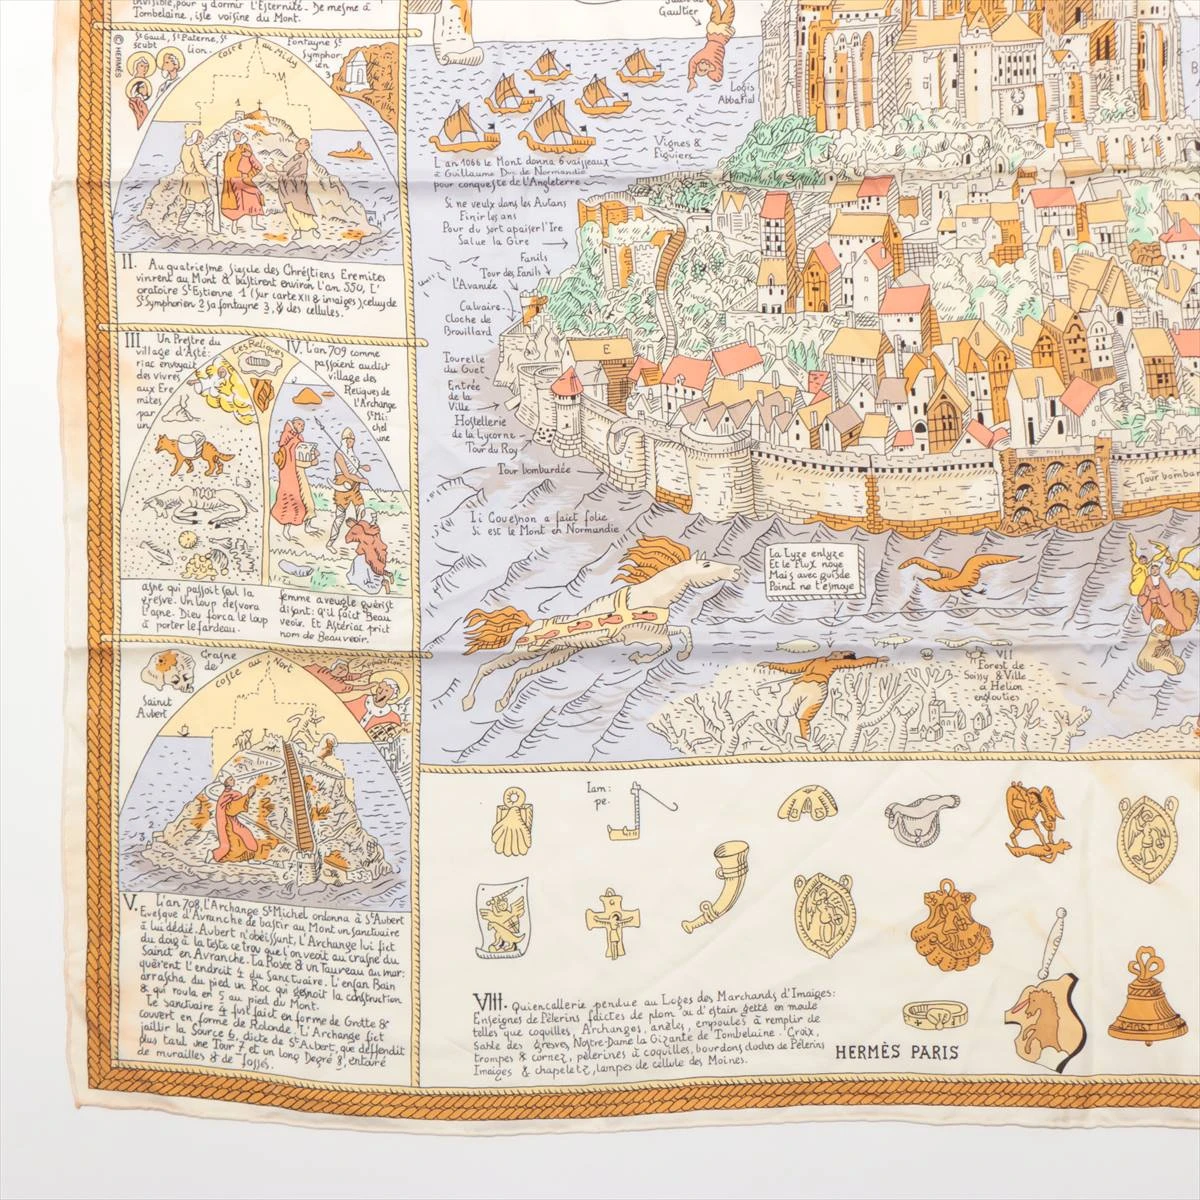 invisible, pour y dormir l'Esternité. De mesme à
Tombelaine, isle voisine du Mont.
© HERMÈS
St Gaud, St Paterne, St
scubi
lion.
coste au Midy
Fontayne St
Symphor:
ien
3
1
II. Au quatriesme siesle des Chréstiens Eremites
vinrent au Mont & bastirent environ l'an 550, L'
oratoire St Estienne 1 (sur carte XII & images), celuy de
St Symphorien 2 sa fontayne 3, & des cellules.
III Un Prestre du
village d'Asté:
riac envoyait
des vivres
aux Ere
mites
par
un
Les Reliques
IV. L'an 709 comme
passoient audict
village des
Reliques de
l'Archange
St Mi:
chel
une
asne qui passoit seul la
gresve. Un loup desvora
l'asne. Dieu força le loup
à porter le fardeau.
femme aveugle guérist
disant: qu'il faict Beau
veoir. Et Astériac prict
nom de Beauveoir.
Crasne
de
Sainct
Aubert
coste au Nort
2
3
V. L'an 708, l'Archange St Michel ordonna à St Aubert
Evesque d'Avranche de bastir au Mont un sanctuaire
à lui dédié. Aubert n'obéissunt, l'Archange lui fict
du doig à la teste ce trou que l'on veoit au crasne du
Sainct en Avranche. La Rosée & un Taureau au mar:
quèrent l'endroit 4 du Sanctuaire. L'enfan Bain
arrascha du pied un Roc qui gesnoit la construction
& qui roula en 5 au pied du Mont.
Le sanctuaire 4 fust faict en forme de Grotte &
couvert en forme de Rotonde. L'Archange fict
jaillir la Source 6, dicte de St Aubert, que deffendit
plus tard une Tour 7 et un long Degré 8, entouré
de murailles & de fosses.
Gaultier
Logis
Abbatial
Vignes &
Figuiers
L'an 1066 le Mont donna 6 vaisseaux
à Guillaume Duc de Normandie
pour conqueste de l'Angleterre
Si ne veulx dans les Autans
Finir les ans
Pour du sort apaiser l'Ire
Salue la Gire
Fanils
Tour des Fanils
l'Avancée
Calvaire
Cloche de
Brouillard
E
Tourelle
du Guet
Entrée
de la
Ville
Hostellerie
de la Lycorne
Tour du Roy
Tour bombardée
Tour bombar
Li Couesnon a faict folie
Si est le Mont en Normandie
La Lyze enlyze
Et le Flux noye
Mais avec guisde
Poinct ne t'esmoye
VII
Forest de
Soissy & Ville
à Hélion
englouties
Lam:
pe.
VIII. Quiencallerie pendue au Loges des Marchands d'Imaiges:
Enseignes de Pèlerins faictes de plom ou d'estain getté en moule
telles que coquilles, Archanges, anèles, empoules à remplir de
Sable des gresves, Nostre-Dame la Gizante de Tombelaine. Croix,
trompes & cornez, pèlerines à coquilles, bourdons cloches de Pèlerins
Imaiges & chapeletz, lampes de cellule des Moines.
HERMÈS PARIS